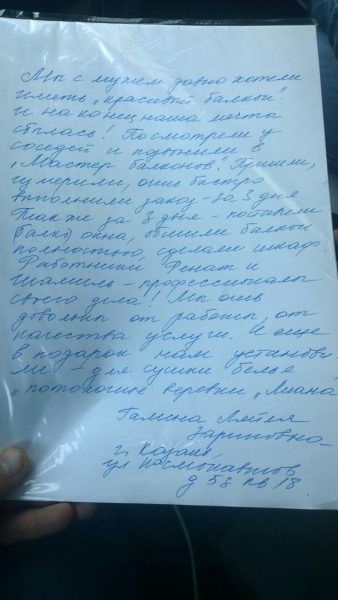 Мы с мужем давно хотели
иметь „красивый балкон"
и наконец наша мечта
сбылась! Посмотрели у
соседей и позвонили в
„Мастер балконов". Пришли,
измерили, очень быстро
выполнили заказ - за 3 дня
Также за 3 дня - поставили
окна, обшили балкон
полностью, сделали шкаф.
Работники Ренат и
Шамиль - профессионалы
своего дела! Мы очень
довольны от работы, от
качества услуги. И еще
в подарок нам установи-
ли - для сушки белья
„потолочные веревки „Лиана"
Галина
Зариповна
г. Казань,
ул Космонавтов
д 58 кв 18.